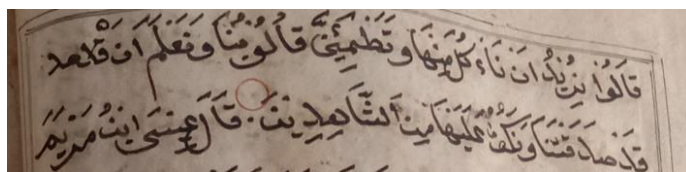 قَالُوا نُرِيدُ اَنْ نَاءْكُلَ مِنْهَا وَتَطْمَئِنَّ قُلُوبُنَا وَنَعْلَمَ اَنْ قَدْ
قَدْ صَدَقْتَنَا وَنَكُونَ عَلَيْهَا مِنَ الشَّاهِدِينَ قَالَ عِيسَى ابْنُ مَرْيَمَ